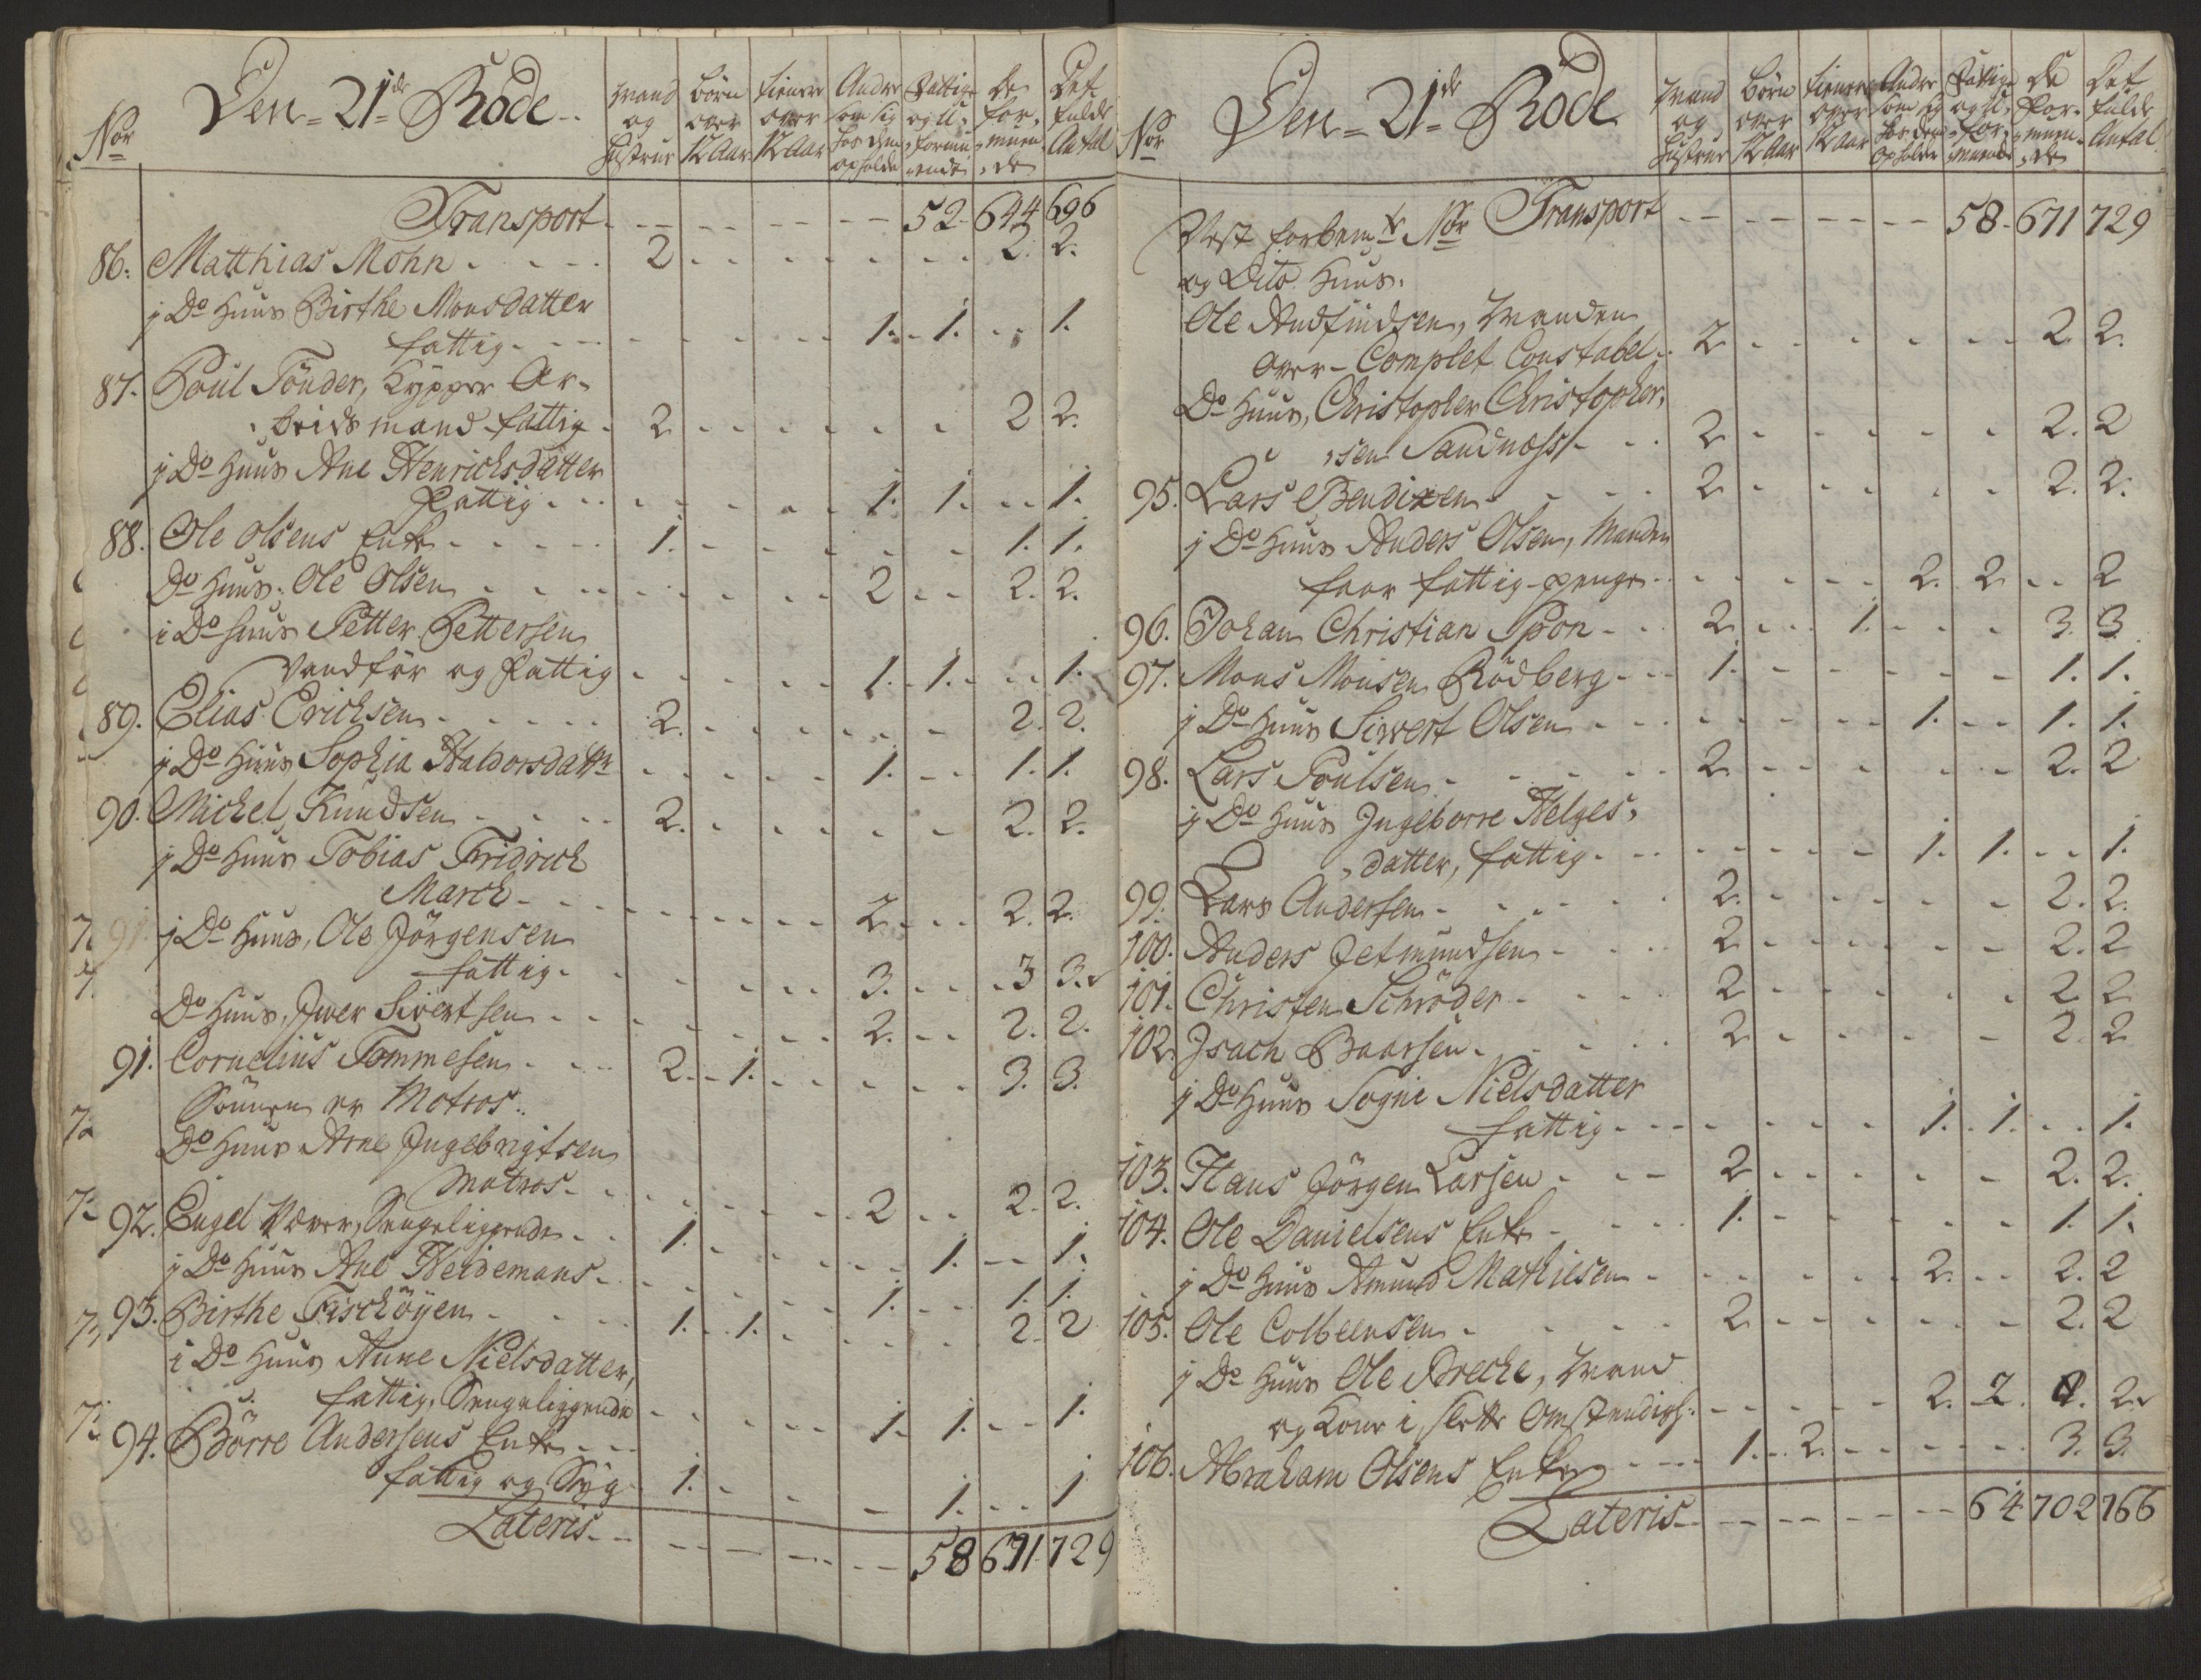 Nor
Den 21de Rode
Mand og Hustrue
Børn over 12 Aar
Tienere over 12 Aar
Andre som sig hos dem opholde
Fattige og U-formuende
De For-muen-de
Det fulde Antal
Transport - - - - - - 52. 644 696
86. Matthias Mohn - - - 2 - - - - - 2. 2.
j Do Huus Birthe Monsdatter
fattig - - - - - - 1. - 1. - - 1.
87. Poul Tönder, Kypper Ar-
beids mand fattig - 2 - - - - - 2 2.
j Do Huus Ane Henrichsdatter
Fattig - - - - - - 1. 1. - - 1.
88. Ole Olsens Enke - - - - 1. - - - - 1. 1.
Do Huus. Ole Olsen - - - - - - 2 - - 2. 2.
i Do Huus Petter Pettersen
Vanför og Fattig - - - - - 1. - 1. - - 1.
89. Elias Erichsen - - - - 2. - - - - - 2. 2.
j Do Huus Sophia Haldorsdattr - - - - 1. - - 1. 1.
90. Michel Knudsen - - - 2. - - - - - 2. 2.
j Do Huus Tobias Fridrich
March - - - - - - 2. - - 2. 2.
j Do Huus, Ole Jörgensen
fattig - - - - - 3. - - - 3 3.
Do Huus, Iver Sivertsen - - - - - 2. - - 2. 2.
91. Cornelius Tommesen - - - 2. - 1. - - - - 3. 3.
Sönnen er Matros.
Do Huus Arne Ingebrigtsen
Matros - - - - - - 2 - - 2. 2.
92. Engel Værer, Sengeliggende - - 1. - - - - 1. - - 1.
j Do Huus Ane Heidemans - - - - - 1. - - 1. 1.
93. Birthe Fischöyen - - - 1. - 1. - - - - 2. 2
i Do Huus Anne Nielsdatter,
fattig, Sengeliggende - - - - - 1. 1. - - 1.
94. Börre Andersens Enke - - -
fattig og Syg - 1. - - - 1. - - 1.
Lateris - - - - - - - 58 671 729
Nor
Den 21de Rode
Mand og Hustrue
Børn over 12 Aar
Tienere over 12 Aar
Andre som sig hos dem opholde
Fattige og U-for-muende
De For-muen-de
Det fulde Antal
Transport - - - - - - 58. 671 729
Vest forbemte Nor
og Dito Huus.
Ole Andfindsen, Manden
Over-Complet Constabel - 2 - - - - - 2. 2.
Do Huus, Christopher Christopher-
sen Sandnæss - - 2 - - - - - 2. 2
95. Lars Bendixen - - - 2 - - - - - 2. 2.
j Do Huus Anders Olsen, Manden
faar fattig-penge - - - - - 2. 2 - - 2
96. Johan Christian Spön - - 2. - - 1. - - - 3. 3.
97. Mons Monsen Rödberg - - 1. - - - - - 1. 1.
j Do Huus Siwert Olsen - - - - - 1. - - 1. 1.
98. Lars Poulsen - - - - 2 - - - - - 2. 2
j Do Huus Ingeborre Helges-
datter, fattig - - - - - - 1. 1. - - 1.
99. Lars Andersen - - - - 2. - - - - 2. 2.
100. Anders Jetmundsen - - - 2 - - - - - 2. 2
101. Christen Schröder - - - 2 - - - - 2. 2
102. Isach Baarsen - - - 2 - - - - 2. 2
j Do Huus Sogni Nielsdatter
fattig - - - - - - 1. - 1. - - 1.
103. Hans Jörgen Larsen - - - 2 - - - - - 2. 2.
104. Ole Danielsens Enke - - - 1. - - - - 1. 1.
j Do Huus Amund Mathiesen - - - - - 2. - - 2. 2
105. Ole Colbeensen - - - 2 - - - - - 2. 2
j Do Huus Ole Breche, Mand
og Kone i slette Omstendigh: - - - - - 2. 2. 2.
106. Abraham Olsens Enke - - - 1. - 2. - - - - 3. 3.
Lateris - - - - - - - 64 702 766